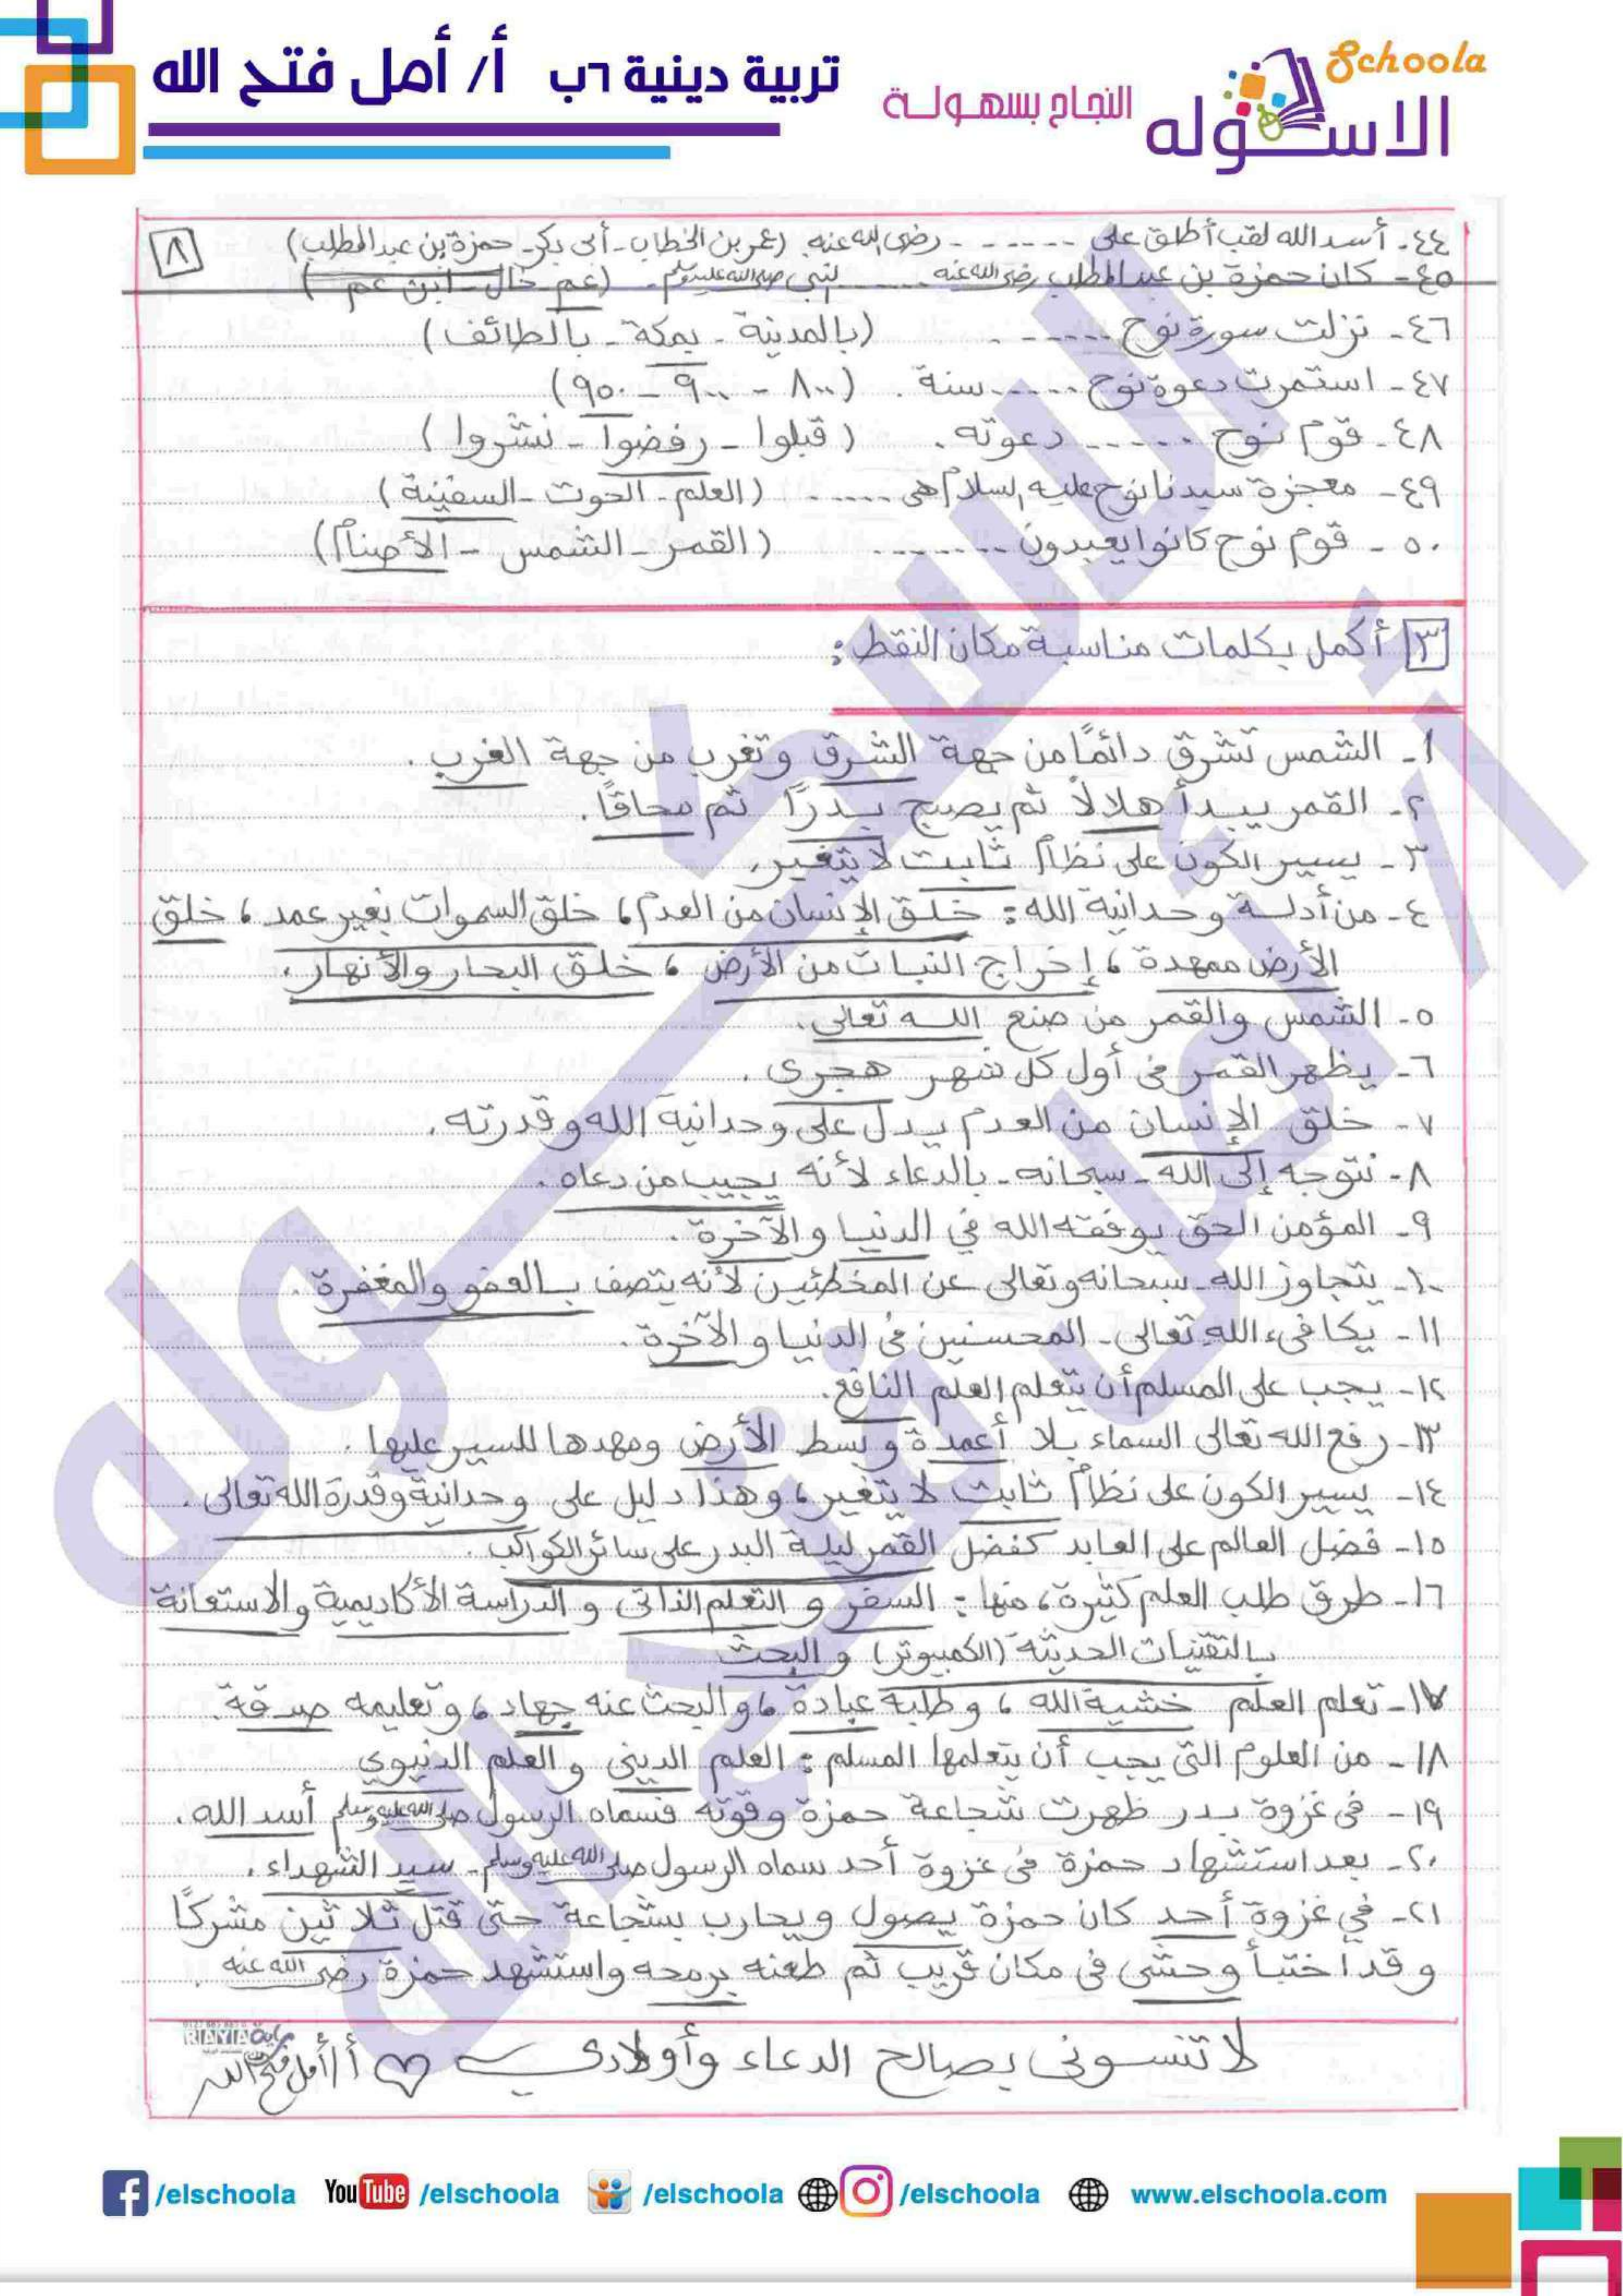 Schoola
الاسكوله
النجاح بسهولة
تربية دينية ٦ب أ/ أمل فتح الله
٨
٤٤- أسد الله لقب أطلق على ------ رضى الله عنه (عمر بن الخطاب - أبى بكر - حمزة بن عبد المطلب)
٤٥- كان حمزة بن عبد المطلب رضى الله عنه ...... لنبى صلى الله عليه وسلم. (عم - خال - ابن عم)
٤٦- نزلت سورة نوح ------ . (بالمدينة - بمكة - بالطائف)
٤٧- استمرت دعوة نوح ...... سنة . (٨٠٠ - ٩٠٠ - ٩٥٠)
٤٨- قوم نوح ------ دعوته . (قبلوا - رفضوا - نشروا)
٤٩- معجزة سيدنا نوح عليه السلام هى ...... . (العلم - الحوت - السفينة)
٥٠- قوم نوح كانوا يعبدون ------- (القمر - الشمس - الأصنام)
٣ أكمل بكلمات مناسبة مكان النقط :
١- الشمس تشرق دائمًا من جهة الشرق وتغرب من جهة الغرب .
٢- القمر يبدأ هلالاً ثم يصبح بدرًا ثم محاقًا .
٣- يسير الكون على نظام ثابت لا يتغير .
٤- من أدلة وحدانية الله : خلق الإنسان من العدم ، خلق السموات بغير عمد ، خلق
الأرض ممهدة ، إخراج النبات من الأرض ، خلق البحار والأنهار .
٥- الشمس والقمر من صنع الله تعالى .
٦- يظهر القمر فى أول كل شهر هجرى .
٧- خلق الإنسان من العدم يدل على وحدانية الله وقدرته .
٨- نتوجه إلى الله - سبحانه - بالدعاء لأنه يجيب من دعاه .
٩- المؤمن الحق يوفقه الله في الدنيا والآخرة .
١٠- يتجاوز الله - سبحانه وتعالى عن المخطئين لأنه يتصف بالعفو والمغفرة .
١١- يكافىء الله تعالى - المحسنين فى الدنيا و الآخرة .
١٢- يجب على المسلم أن يتعلم العلم النافع .
١٣- رفع الله تعالى السماء بلا أعمدة و بسط الأرض ومهدها للسير عليها .
١٤- يسير الكون على نظام ثابت لا يتغير ، وهذا دليل على وحدانية وقدرة الله تعالى .
١٥- فضل العالم على العابد كفضل القمر ليلة البدر على سائر الكواكب .
١٦- طرق طلب العلم كثيرة ، منها : السفر و التعلم الذاتى و الدراسة الأكاديمية والاستعانة
بالتقنيات الحديثة (الكمبيوتر) و البحث
١٧- تعلم العلم خشية الله ، وطلبه عبادة ، والبحث عنه جهاد ، وتعليمه صدقة .
١٨- من العلوم التى يجب أن يتعلمها المسلم : العلم الدينى و العلم الدنيوي
١٩- فى غزوة بدر ظهرت شجاعة حمزة وقوته فسماه الرسول صلى الله عليه وسلم أسد الله .
٢٠- بعد استشهاد حمزة فى غزوة أحد سماه الرسول صلى الله عليه وسلم - سيد الشهداء .
٢١- في غزوة أحد كان حمزة يصول ويحارب بشجاعة حتى قتل ثلاثين مشركًا
وقد اختبأ وحشى فى مكان قريب ثم طعنه برمحه واستشهد حمزة رضى الله عنه .
لا تنسونى بصالح الدعاء وأولادى أ/ أمل فتح الله
RIAYIA
/elschoola YouTube /elschoola /elschoola /elschoola www.elschoola.com
الاسكوله
أ/ أمل فتح الله